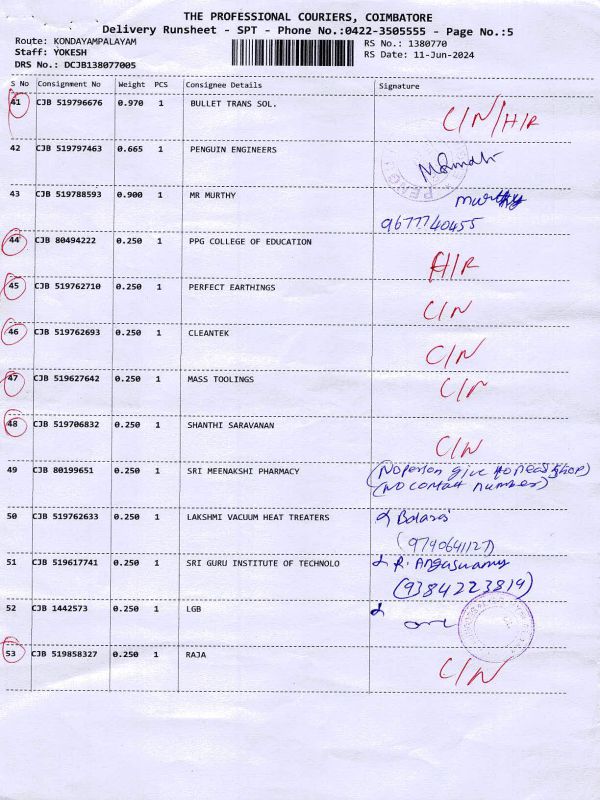 THE PROFESSIONAL COURIERS, COIMBATORE
Delivery Runsheet - SPT - Phone No.:0422-3505555 - Page No.:5
Route: KONDAYAMPALAYAM RS No.: 1380770
Staff: YOKESH RS Date: 11-Jun-2024
DRS No.: DCJB138077005
S No Consignment No Weight PCS Consignee Details Signature
41 CJB 519796676 0.970 1 BULLET TRANS SOL. C/N/H/R
42 CJB 519797463 0.665 1 PENGUIN ENGINEERS
43 CJB 519788593 0.900 1 MR MURTHY Murthy
9677740455
44 CJB 80494222 0.250 1 PPG COLLEGE OF EDUCATION H/R
45 CJB 519762710 0.250 1 PERFECT EARTHINGS C/N
46 CJB 519762693 0.250 1 CLEANTEK C/N
47 CJB 519627642 0.250 1 MASS TOOLINGS C/N
48 CJB 519706832 0.250 1 SHANTHI SARAVANAN C/N
49 CJB 80199651 0.250 1 SRI MEENAKSHI PHARMACY (NO person give to near shop)
(NO contact number)
50 CJB 519762633 0.250 1 LAKSHMI VACUUM HEAT TREATERS
(9790641127)
51 CJB 519617741 0.250 1 SRI GURU INSTITUTE OF TECHNOLO R. Angaswamy
(9384223819)
52 CJB 1442573 0.250 1 LGB
53 CJB 519858327 0.250 1 RAJA C/N